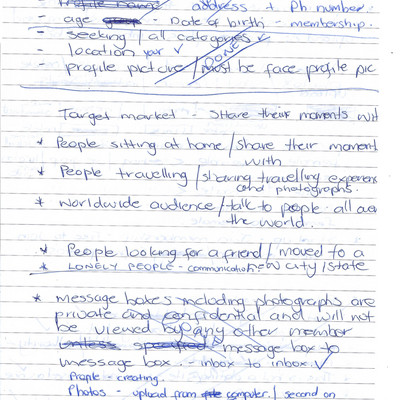 - Profile name address + Ph number.
- age - Date of birth - membership.
- seeking / all catagories ✓
- location ✓
DONE
- profile picture / must be face profile pic
Target market - Share their moments wit
* People sitting at home / share their moment
with
* People travelling / sharing travelling experien
and photographs.
* worldwide audience / talk to people all
the world.
* People looking for a friend / moved to a
* LONELY PEOPLE - communication = city / state
* message boxes including photographs are
private and confidential and will not
be viewed by any other member
unless specified message box to
message box. - inbox to inbox. ✓
Profile - creating.
Photos - upload from computer / second on